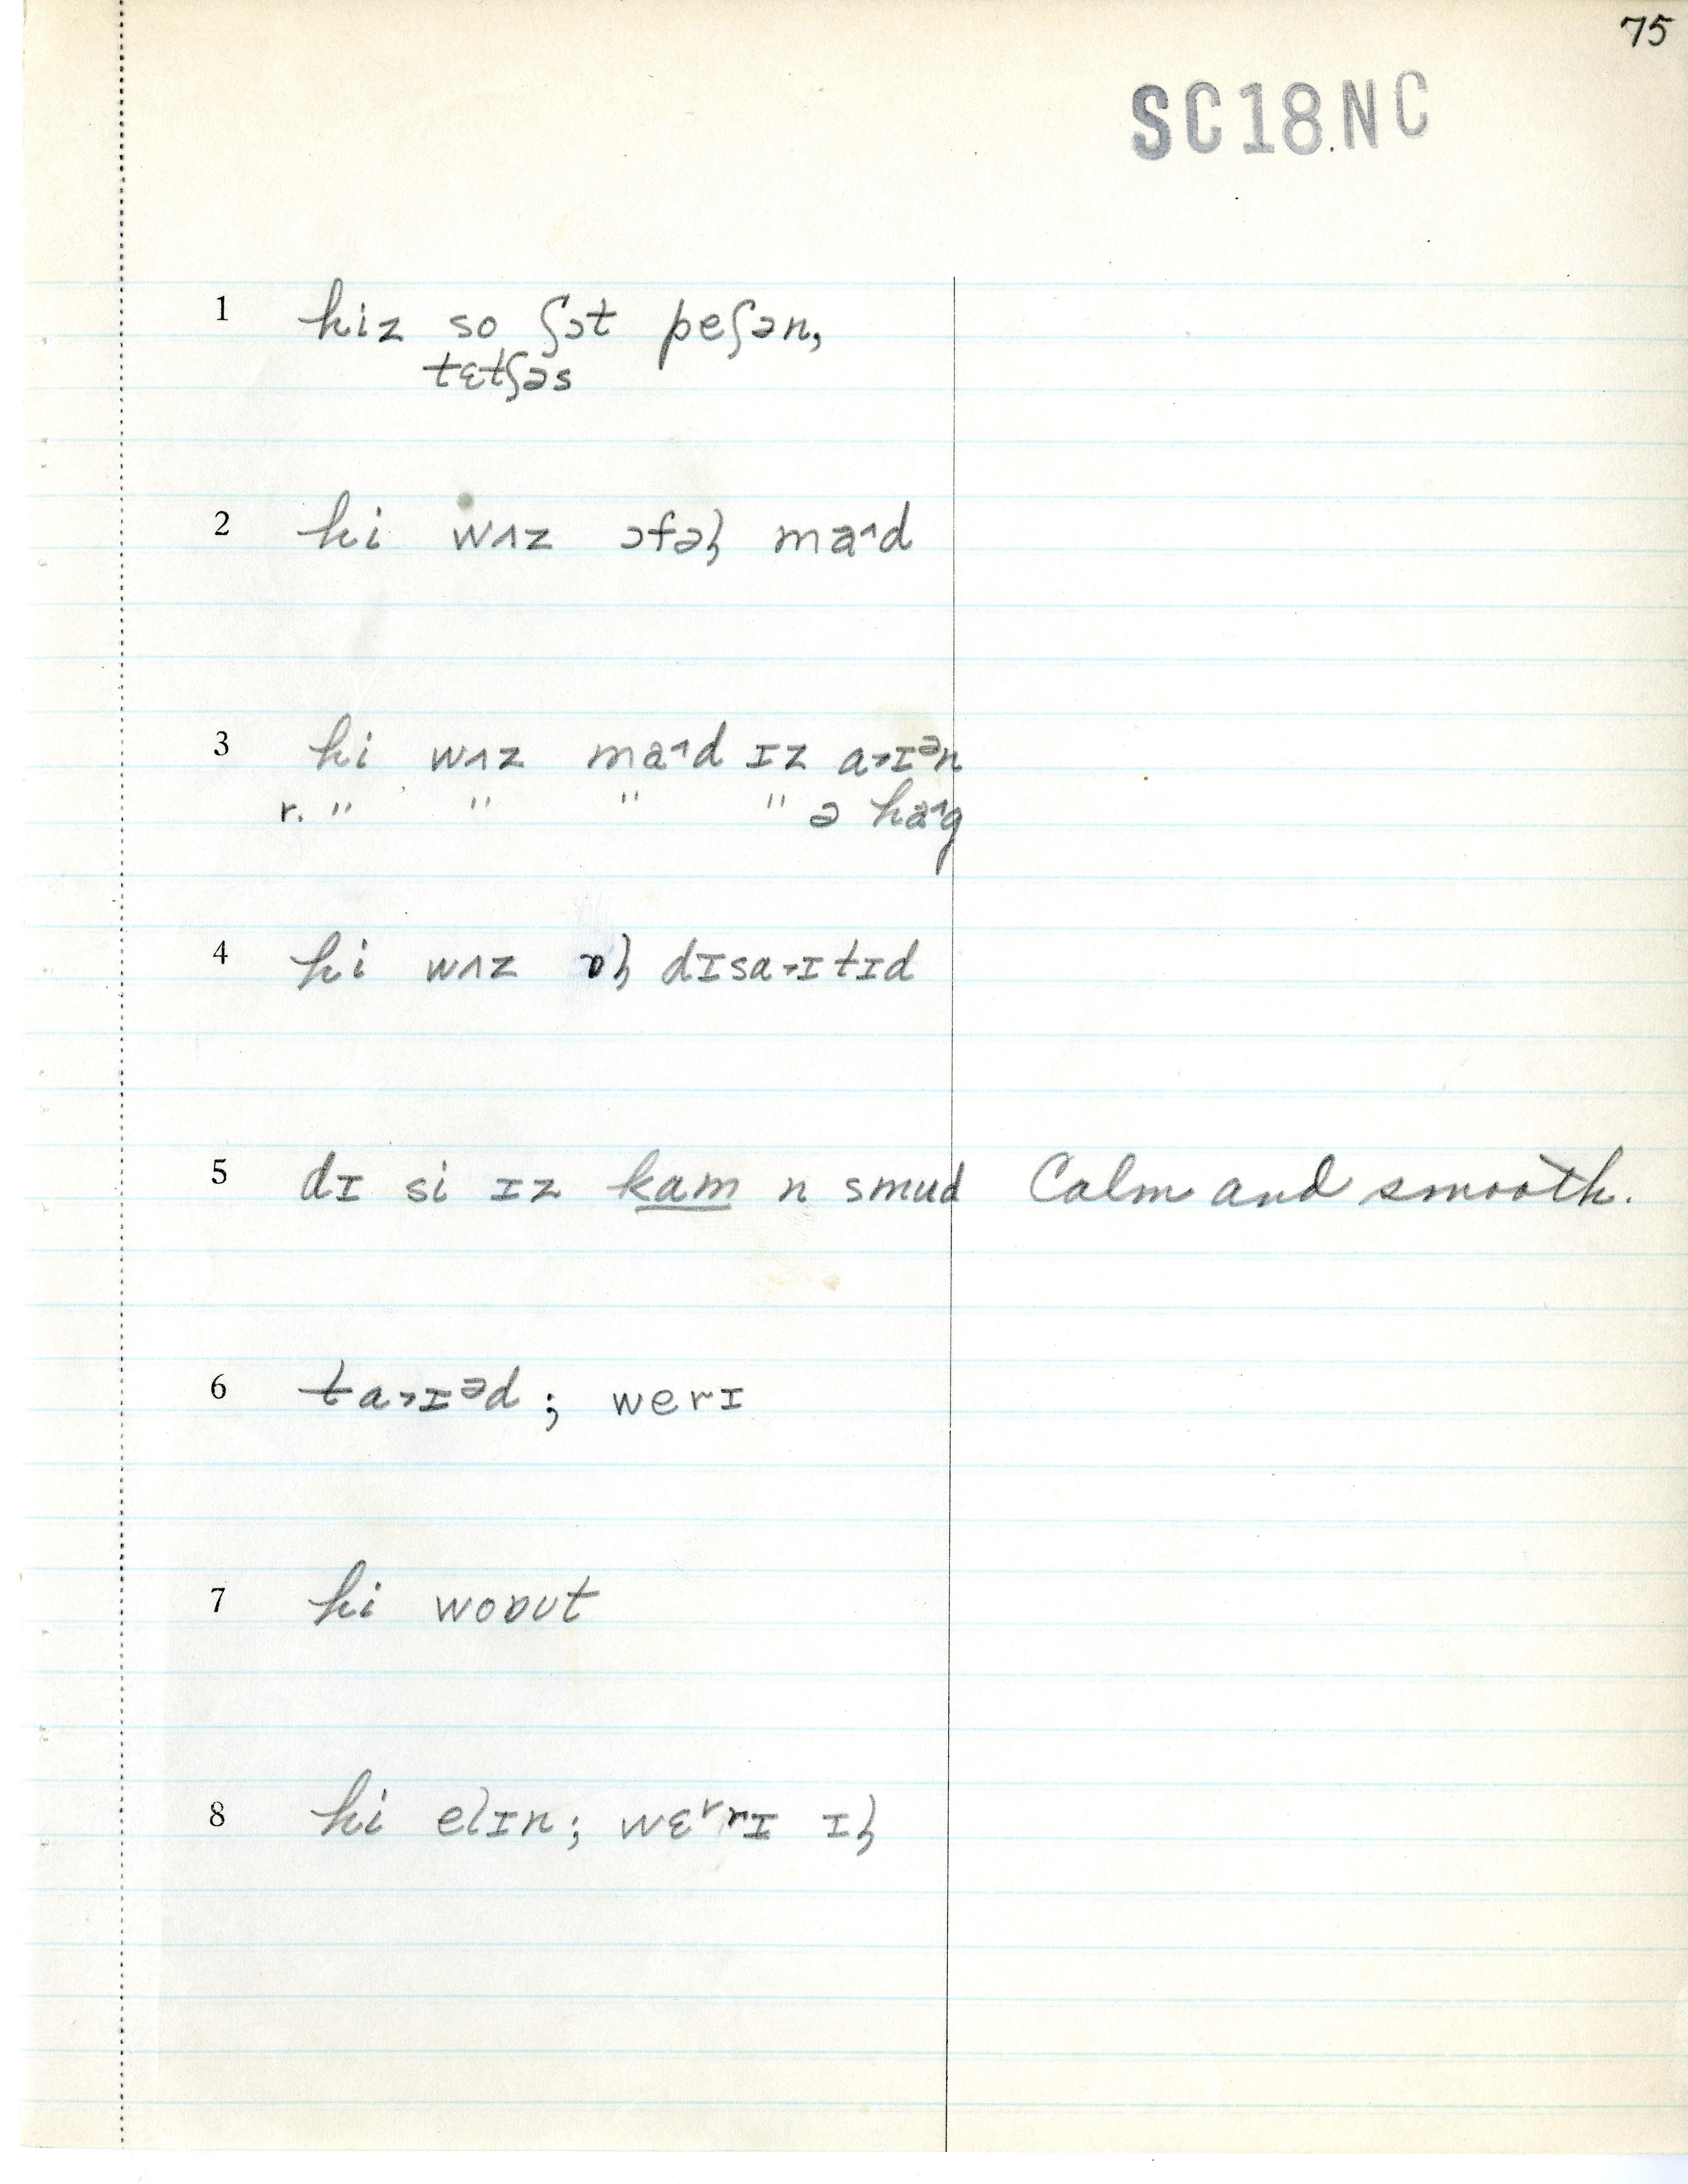 75
SC18.NC
1 hiz so ʃɔt peʃən,
tɛtʃəs
2 hi wʌz ɔfəɫ maˑ^d
3 hi wʌz maˑ^d ɪz aˑɪᵊn
r. " " " " ə haˑ^g
4 hi wʌz ɒɫ dɪsaˑɪtɪd
5 dɪ si ɪz kam n smud Calm and smooth.
6 taˑɪᵊd; werɪ
7 hi woɒut
8 hi elɪn; wɛʳrɪ ɪɫ